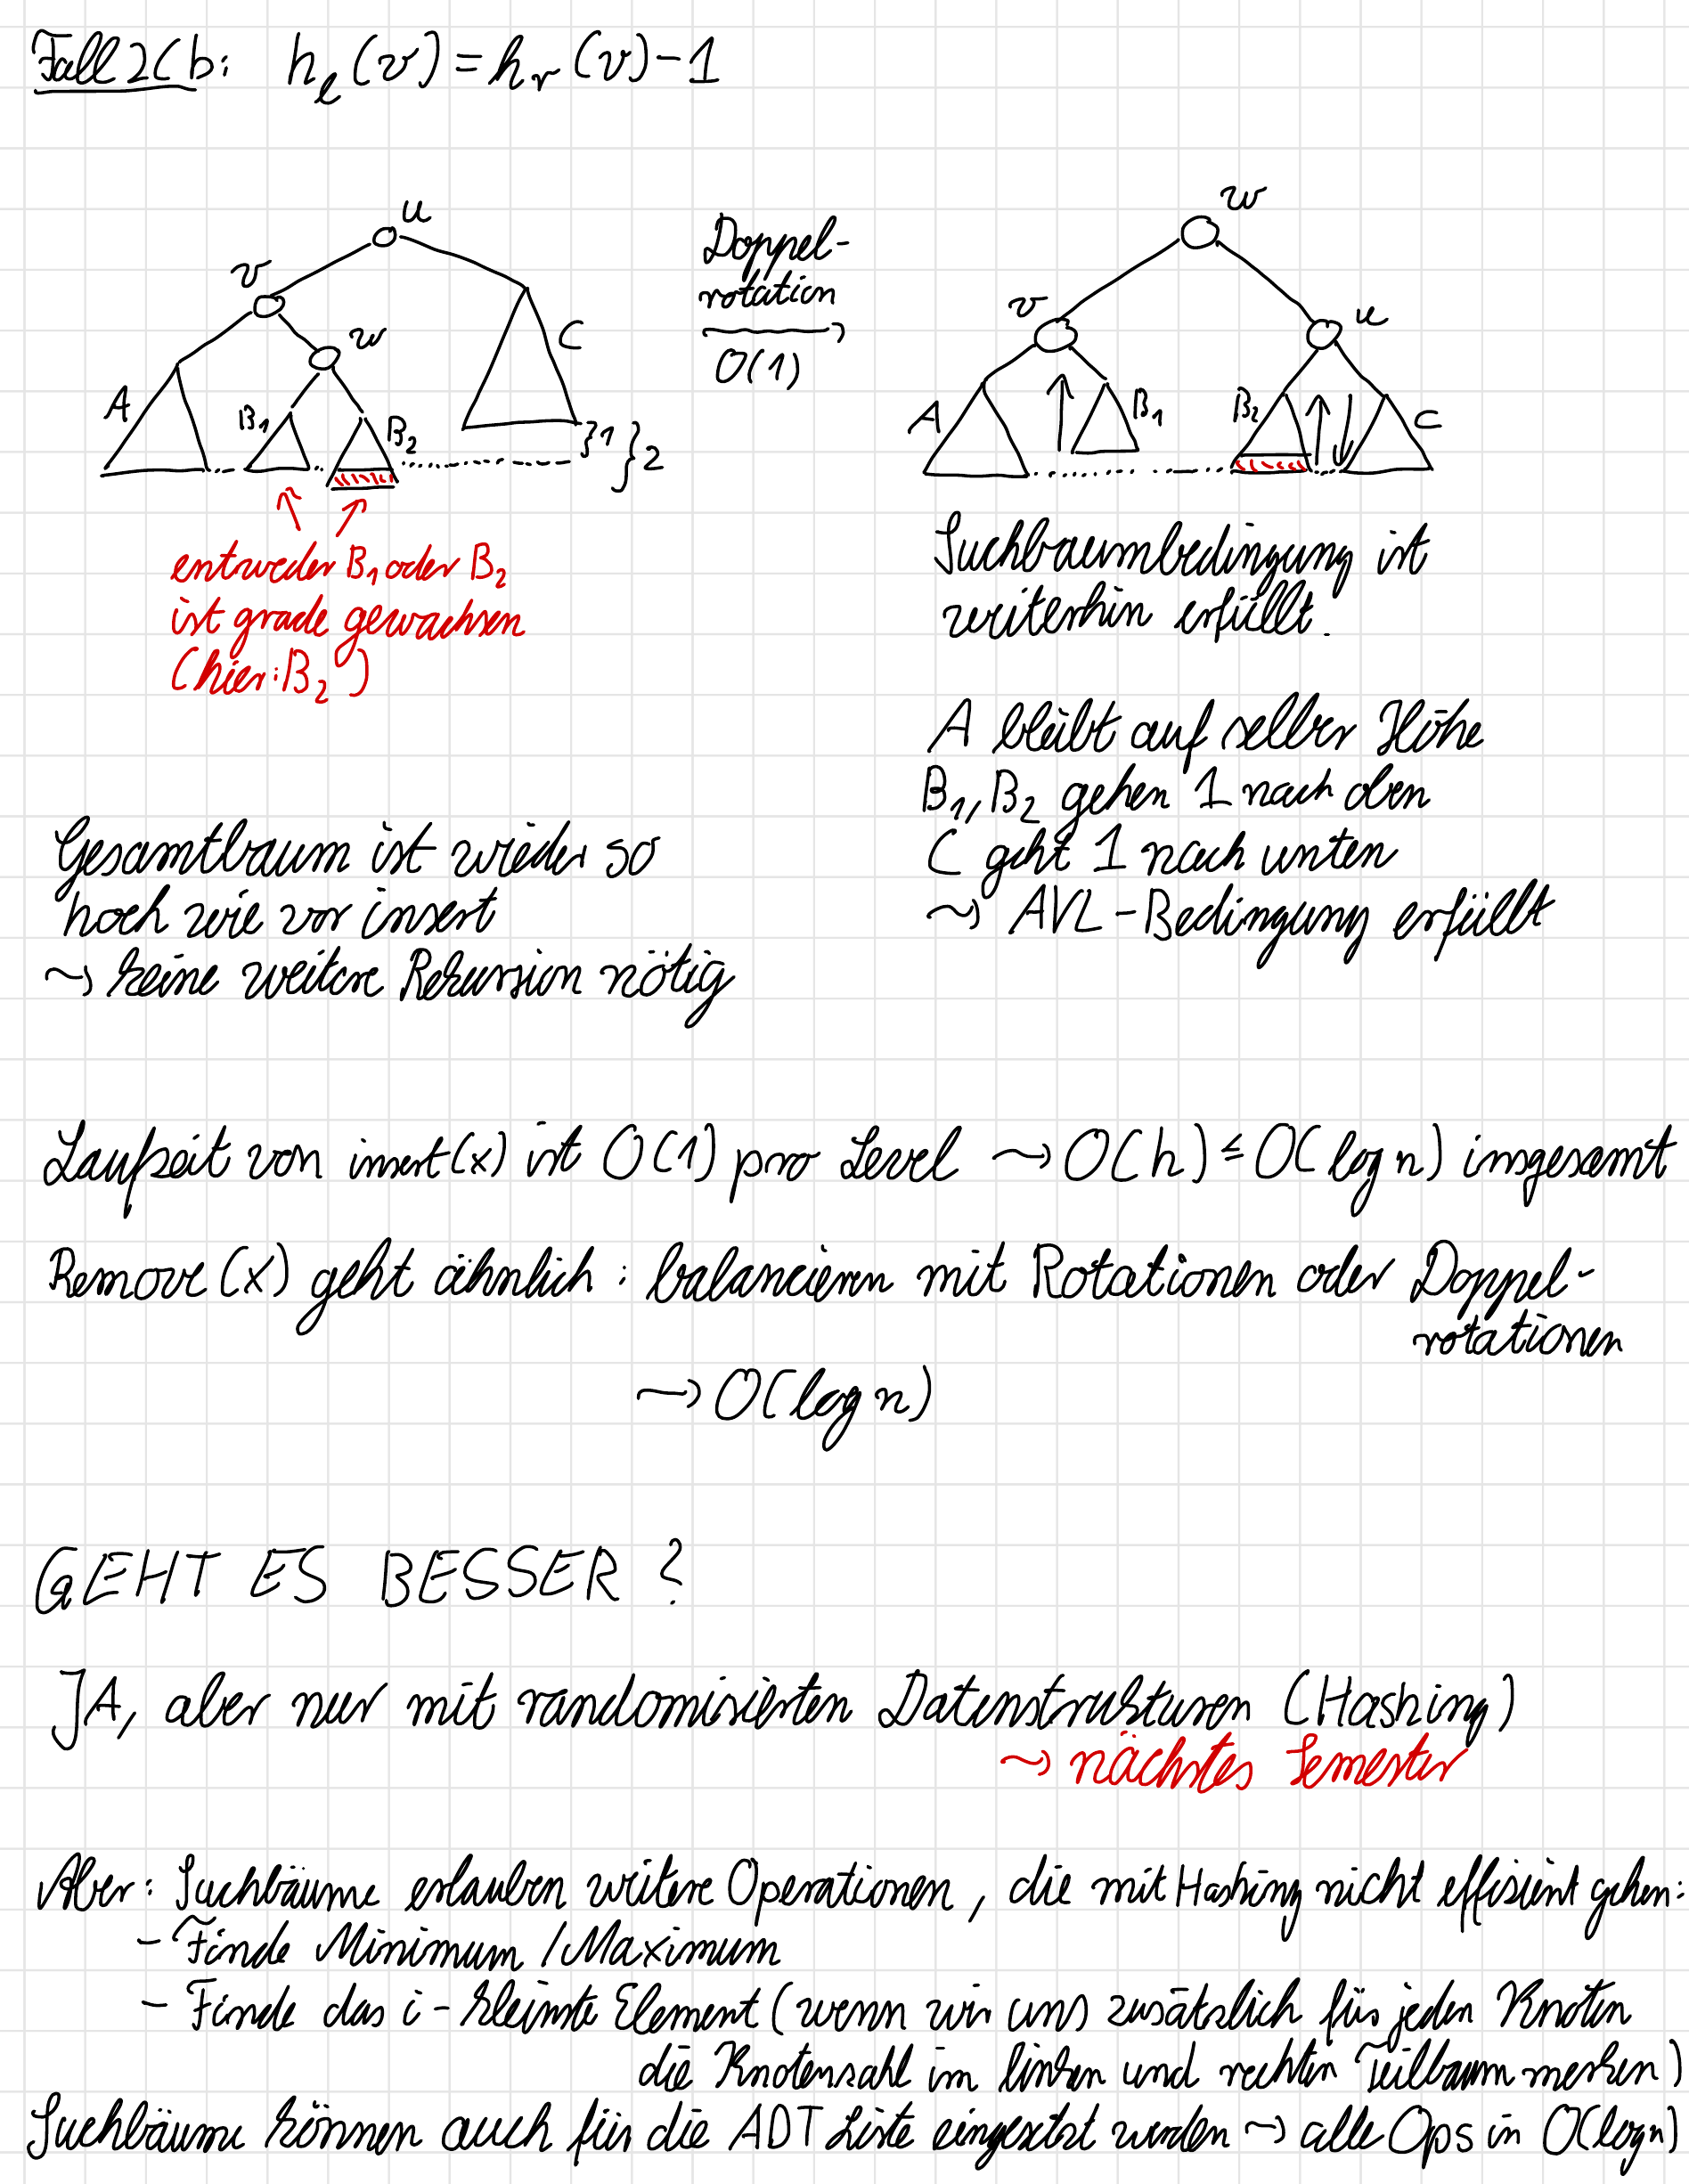 Fall 2Cb: h_l(v) = h_r(v) - 1
u
v
w
A
B₁
B₂
C
}1
}2
Doppel-
rotation
O(1)
w
v
u
A
B₁
B₂
C
entweder B₁ oder B₂
ist grade gewachsen
(hier: B₂)
Suchbaumbedingung ist
weiterhin erfüllt.
A bleibt auf selber Höhe
B₁, B₂ gehen 1 nach oben
C geht 1 nach unten
⇝ AVL-Bedingung erfüllt
Gesamtbaum ist wieder so
hoch wie vor insert
⇝ keine weitere Rekursion nötig
Laufzeit von insert(x) ist O(1) pro Level ⇝ O(h) ≤ O(log n) insgesamt
Remove(x) geht ähnlich: balancieren mit Rotationen oder Doppel-
rotationen
⇝ O(log n)
GEHT ES BESSER?
JA, aber nur mit randomisierten Datenstrukturen (Hashing)
⇝ nächstes Semester
Aber: Suchbäume erlauben weitere Operationen, die mit Hashing nicht effizient gehen:
- Finde Minimum/Maximum
- Finde das i-kleinste Element (wenn wir uns zusätzlich für jeden Knoten
die Knotenzahl im linken und rechten Teilbaum merken)
Suchbäume können auch für die ADT Liste eingesetzt werden ⇝ alle Ops in O(log n)